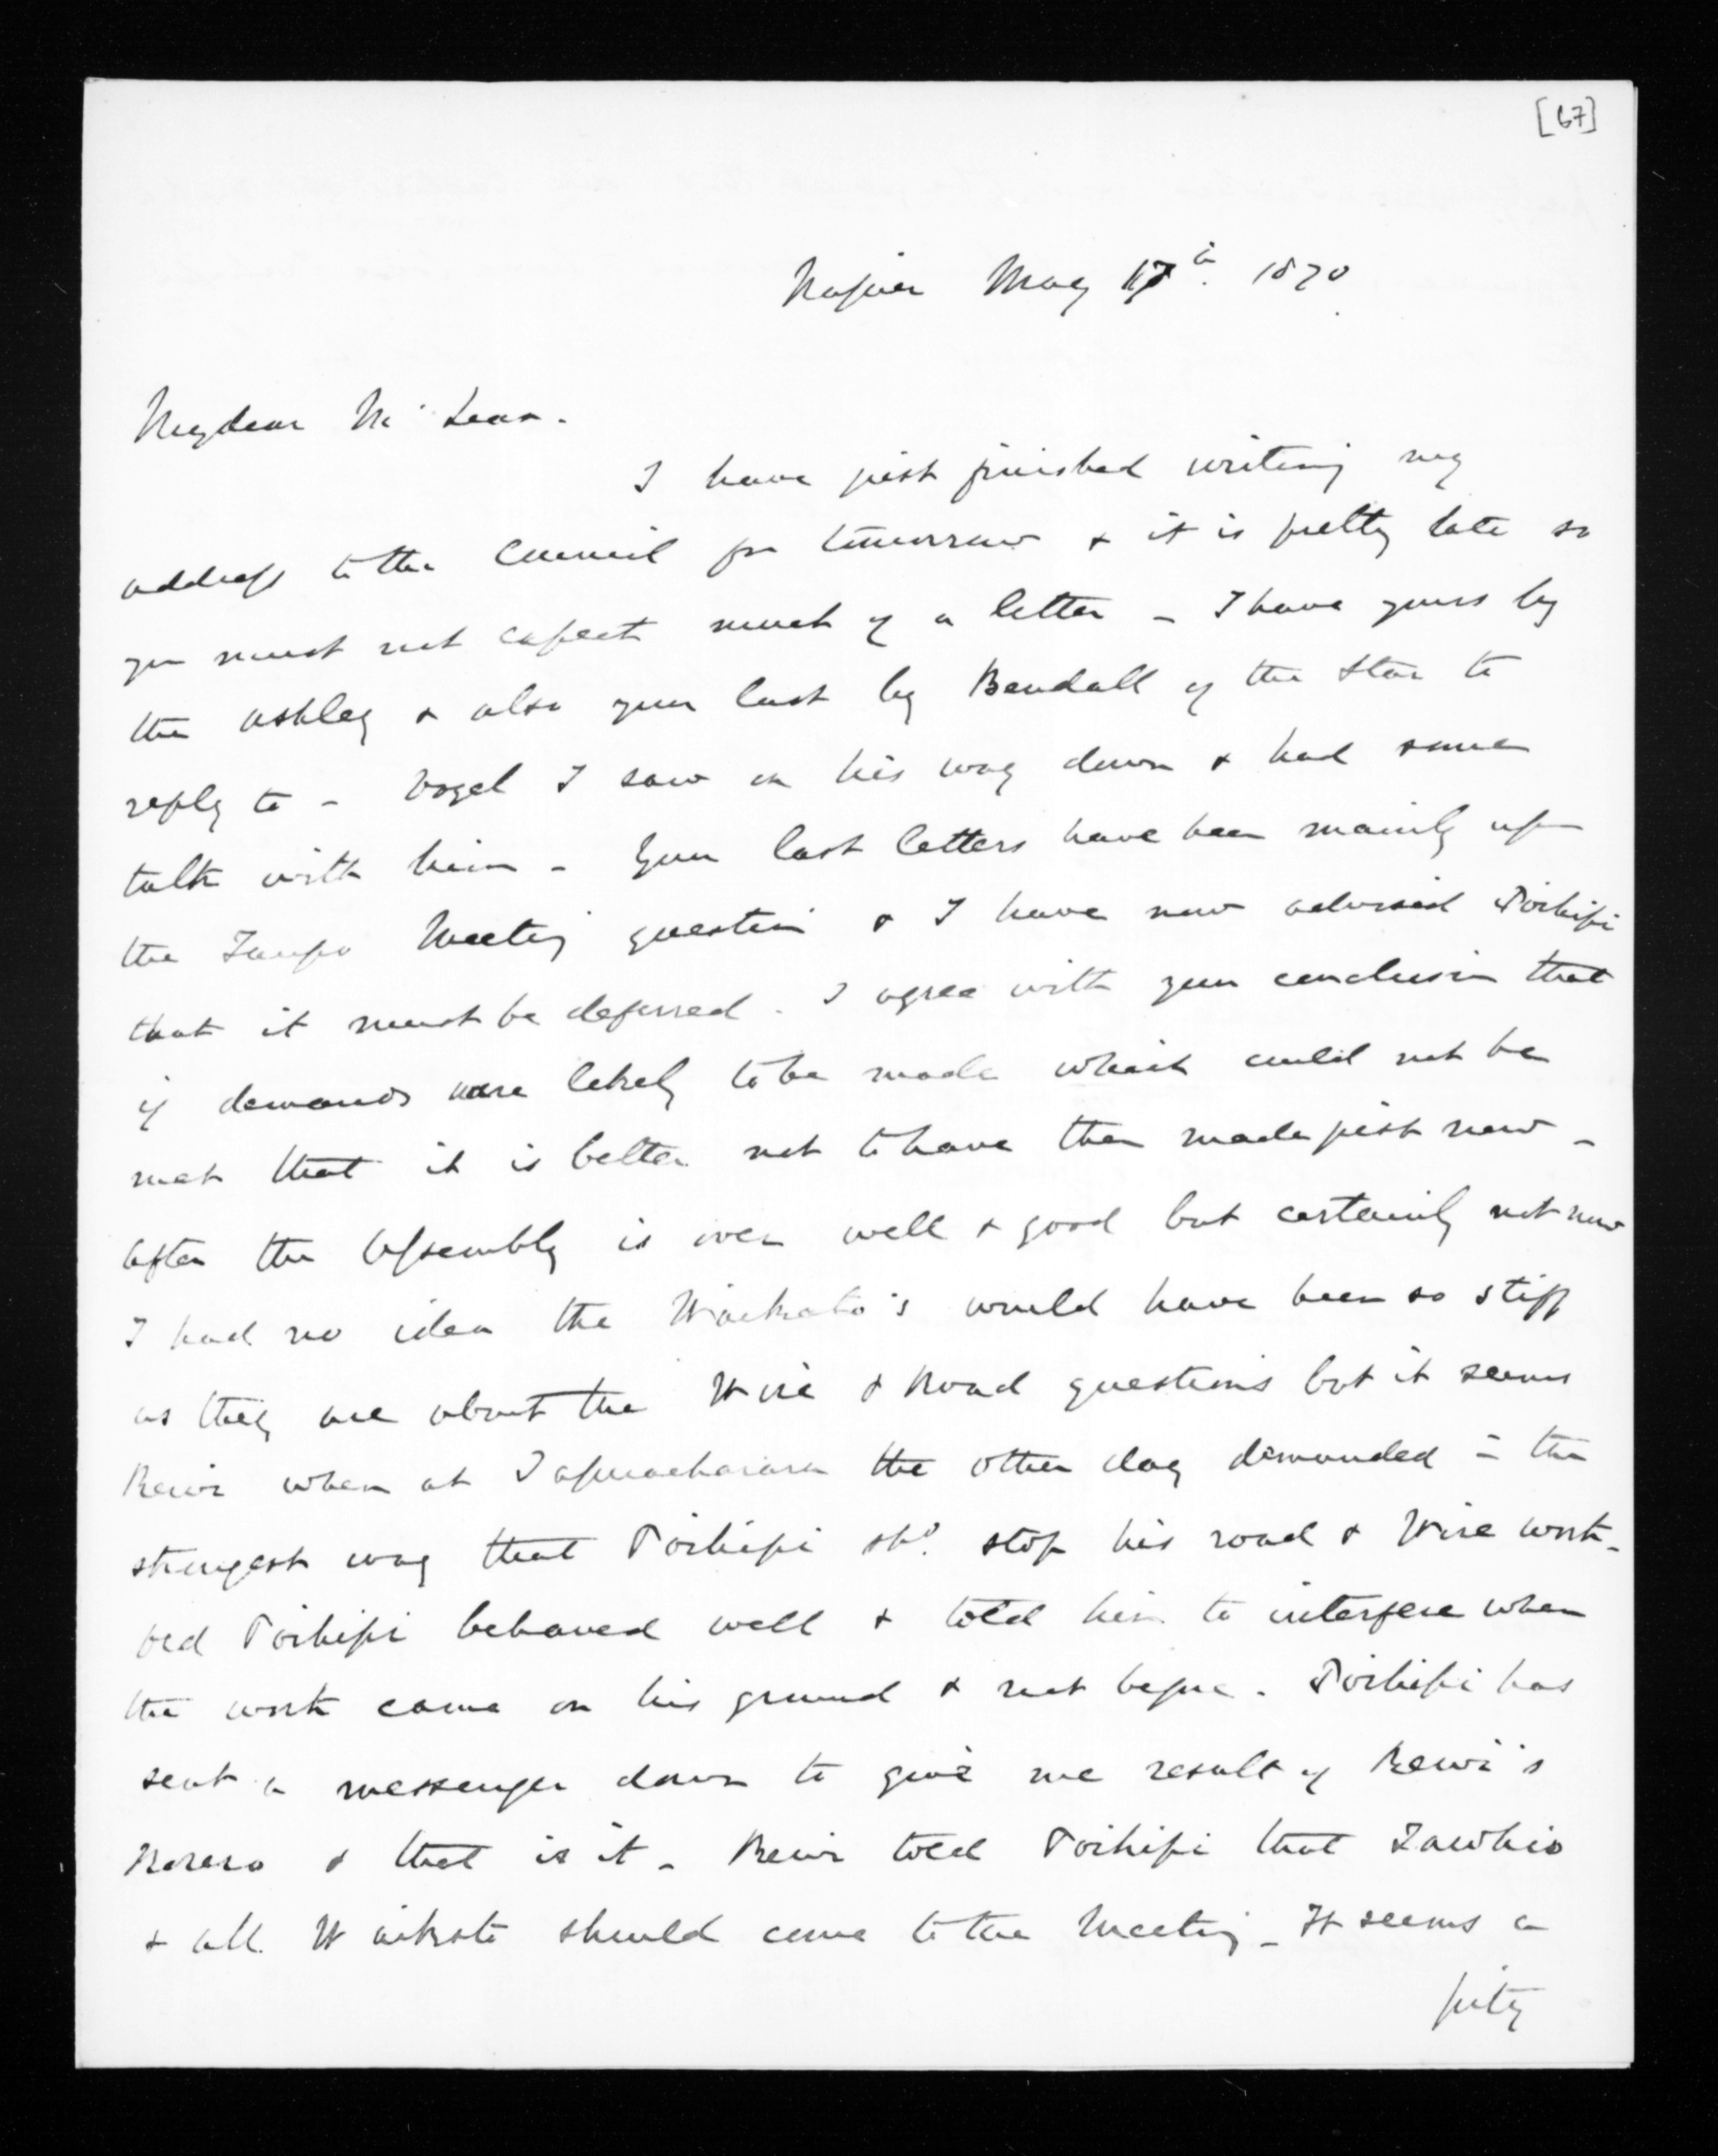 [67]
Napier May 17th. 1870.
My dear McLean.
I have just finished writing my
address to the Council for tomorrow & it is pretty late so
you must not expect much of a letter - I have yours by
the Ashley & also your last by Bendall of the Star to
reply to - Vogel I saw on his way down & had some
talk with him - Your last letters have been mainly upon
the Taupo Meeting question & I have now advised Poihipi
that it must be deferred. I agree with your conclusion that
if demands were likely to be made which could not be
met that it is better not to have them made just now -
after the Assembly is over well & good but certainly not now
I had no idea the Waikato's would have been so stiff
as they are about the Wire & Road questions but it seems
Rewi when at Tapuaeharuru the other day demanded in the
strongest way that Poihipi shd. stop his road & Wire work -
old Poihipi behaved well & told him to interfere when
the work came on his ground & not before. Poihipi has
sent a messenger down to give me result of Rewi's
Korero & that is it - Rewi told Poihipi that Tawhio
& all Waikato should come to the Meeting - It seems a
pity